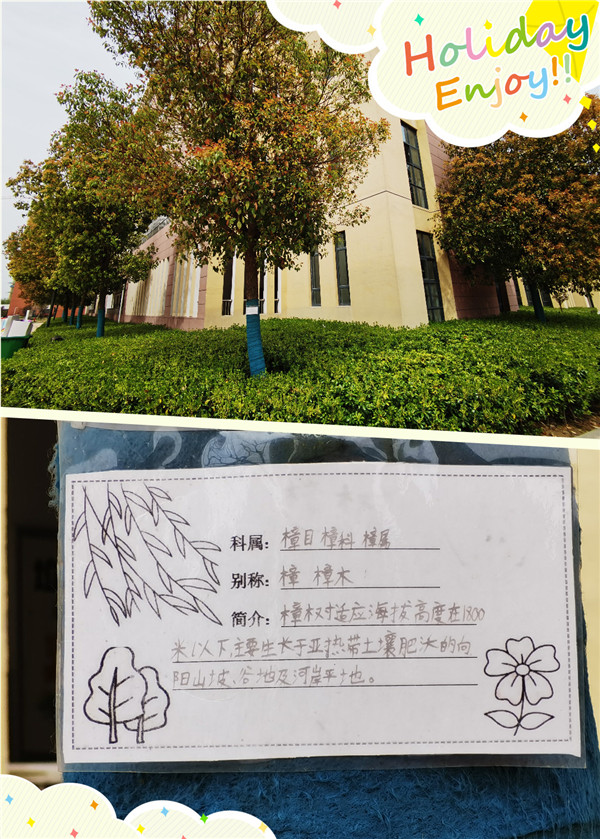 Holiday
Enjoy!!
科属: 樟目 樟科 樟属
别称: 樟 樟木
简介: 樟树对适应海拔高度在1800
米以下主要生长于亚热带土壤肥沃的向
阳山坡、谷地及河岸平地。